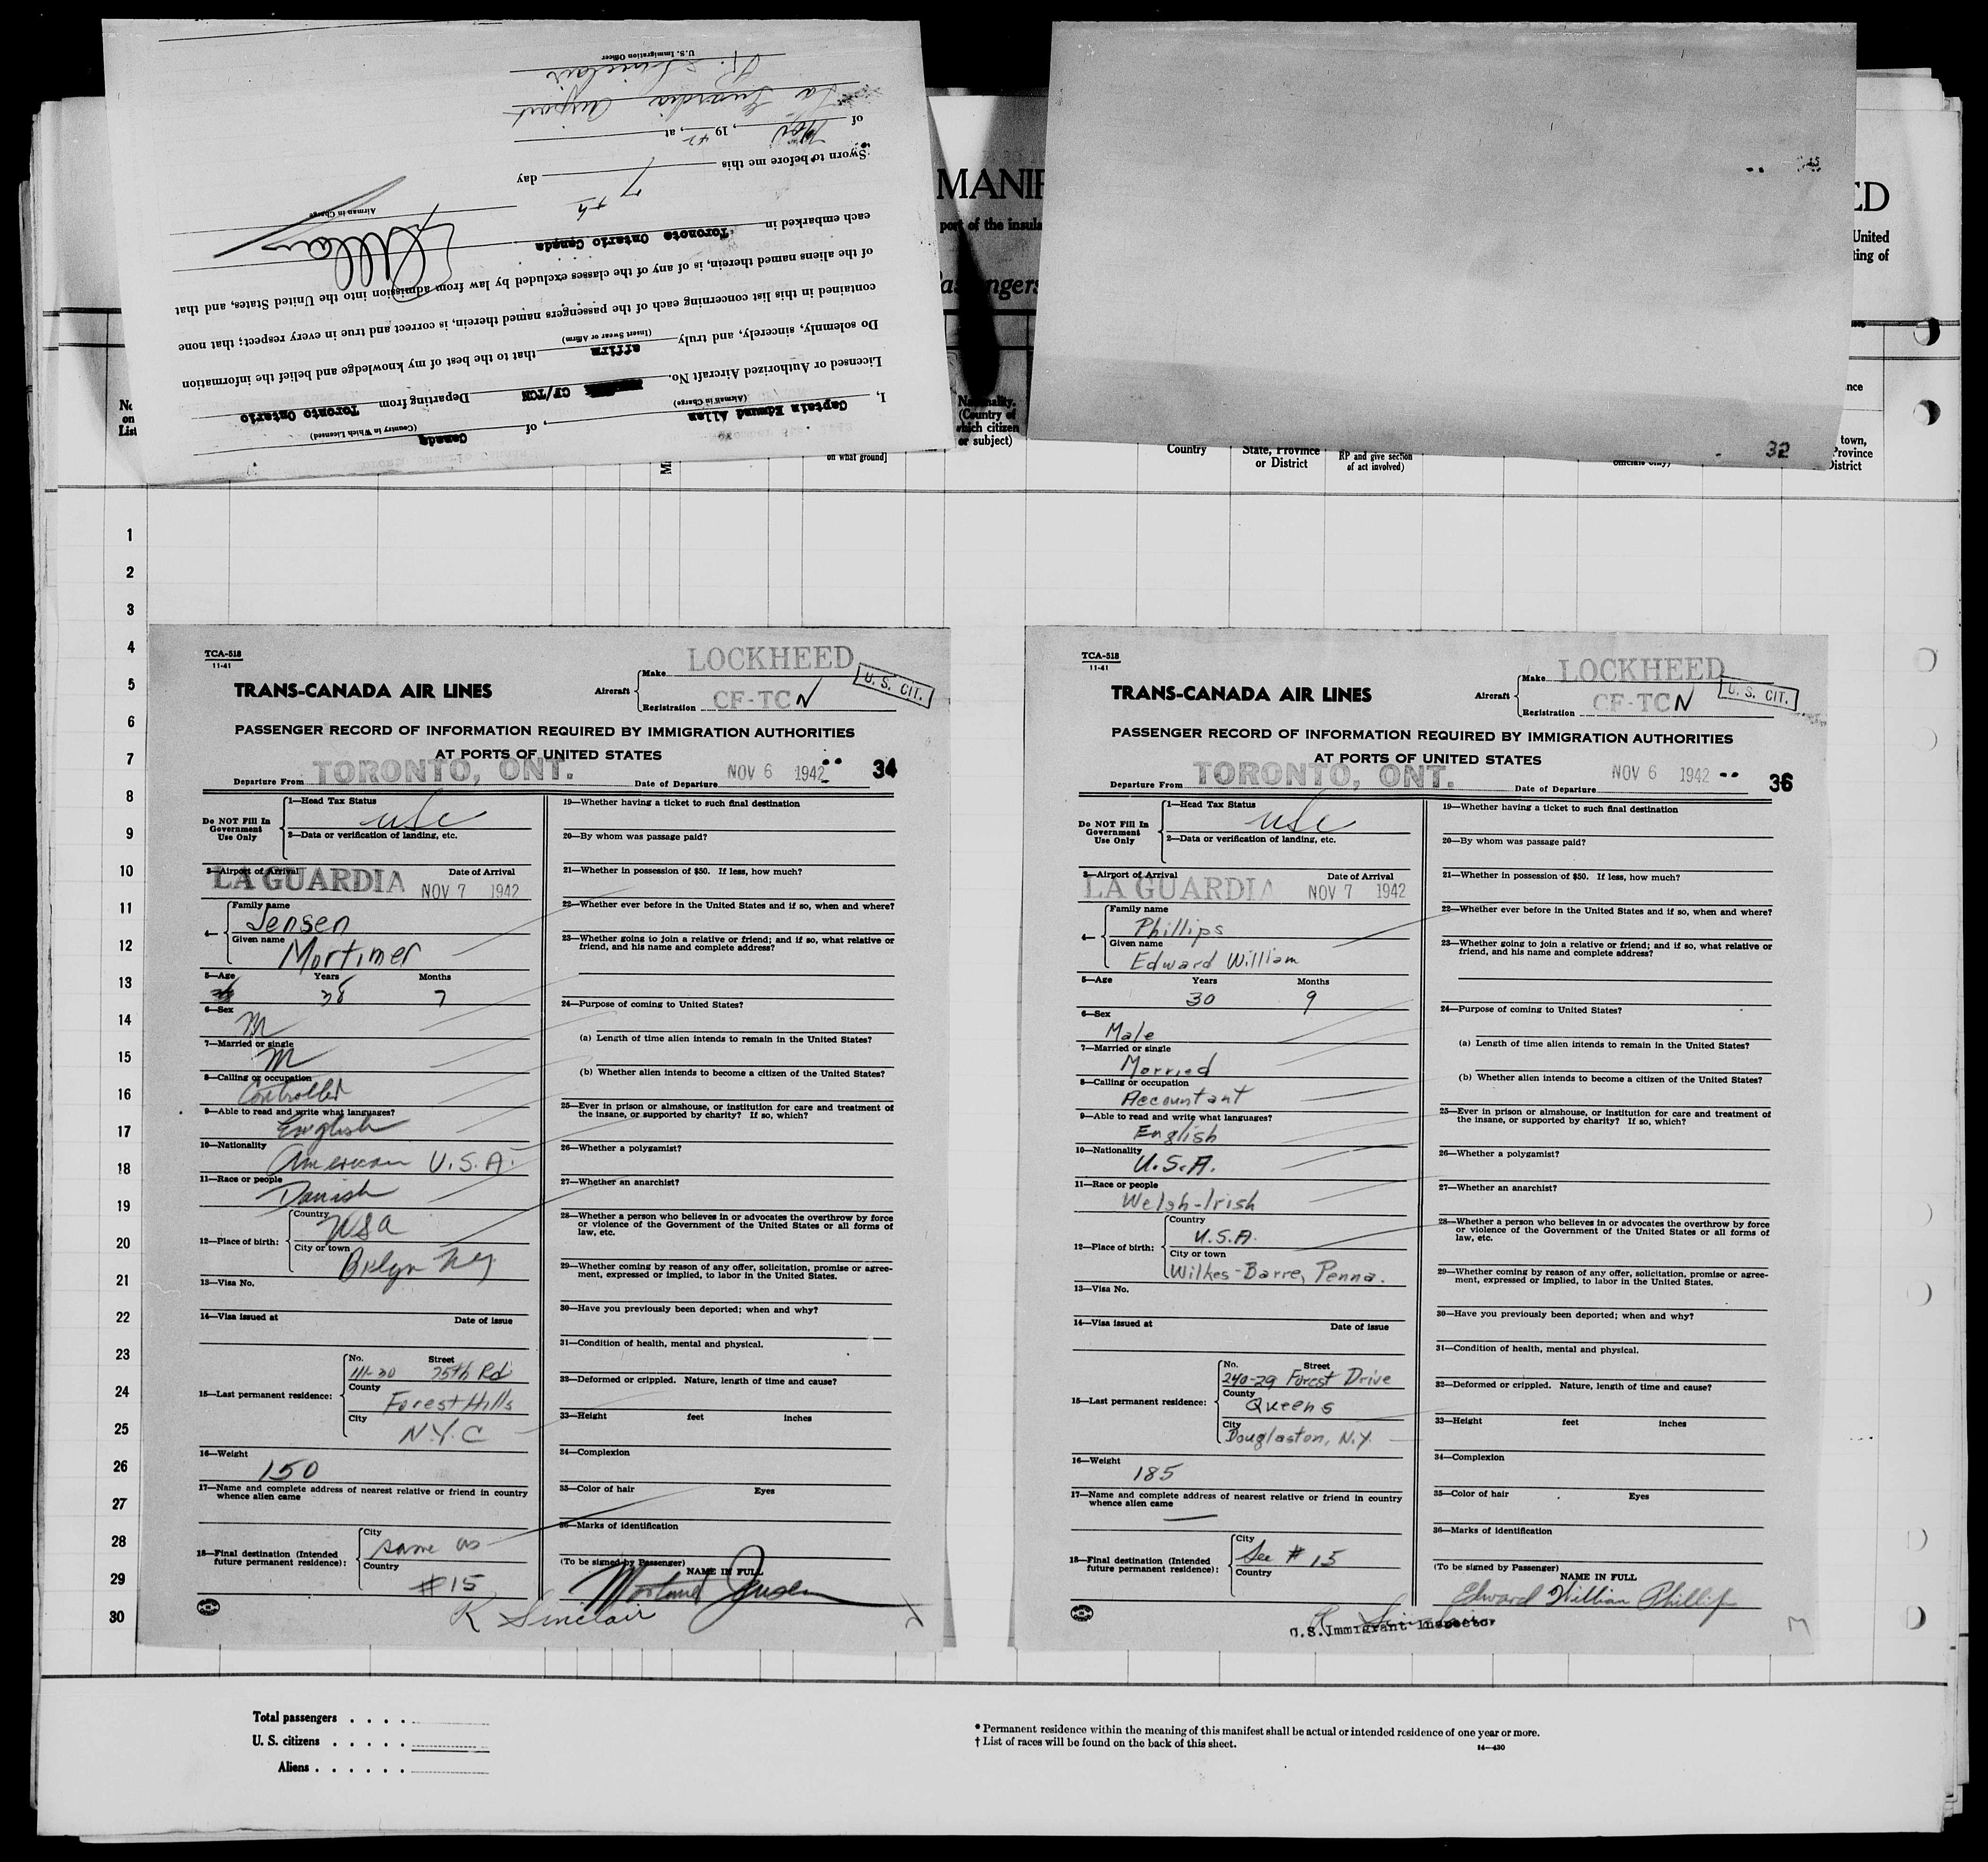 I, Captain Edmund Allan, of Canada
(Airman in Charge) (Country in Which Licensed)
Licensed or Authorized Aircraft No. CF/TCN Departing from Toronto Ontario
Do solemnly, sincerely, and truly affirm that to the best of my knowledge and belief the information
(Insert Swear or Affirm)
contained in this list concerning each of the passengers named therein, is correct and true in every respect; that none
of the aliens named therein, is of any of the classes excluded by law from admission into the United States, and that
each embarked in Toronoto Ontario Canada
Airman in Charge
Sworn to before me this 7th day
of Nov, 1942, at
La Guardia Airport
R. Sinclair
U.S. Immigration Officer
32
MANIF
ED
port of the insula
United
ting of
No
on
List
Nationality.
(Country of
which citizen
or subject)
on what ground]
Country
State, Province
or District
RP and give section
of act involved)
town,
Province
District
1
2
3
4
5
6
7
8
9
10
11
12
13
14
15
16
17
18
19
20
21
22
23
24
25
26
27
28
29
30
TCA-518
11-41
TRANS-CANADA AIR LINES
Aircraft
Make LOCKHEED
Registration CF-TCN
U. S. CIT.
PASSENGER RECORD OF INFORMATION REQUIRED BY IMMIGRATION AUTHORITIES
AT PORTS OF UNITED STATES
34
Departure From TORONTO, ONT. Date of Departure NOV 6 1942
Do NOT Fill In
Government
Use Only
1—Head Tax Status
usc
2—Data or verification of landing, etc.
3—Airport of Arrival Date of Arrival
LA GUARDIA NOV 7 1942
4— Family name
Jensen
Given name
Mortimer
5—Age Years Months
38 7
6—Sex
M
7—Married or single
M
8—Calling or occupation
Controller
9—Able to read and write what languages?
English
10—Nationality
American U.S.A.
11—Race or people
Danish
12—Place of birth:
Country
USA
City or town
Bklyn NY
13—Visa No.
14—Visa issued at Date of issue
15—Last permanent residence:
No. Street
111-30 75th Rd
County
Forest Hills
City
N.Y.C
16—Weight
150
17—Name and complete address of nearest relative or friend in country
whence alien came
18—Final destination (Intended
future permanent residence):
City
same as
Country
#15
19—Whether having a ticket to such final destination
20—By whom was passage paid?
21—Whether in possession of $50. If less, how much?
22—Whether ever before in the United States and if so, when and where?
23—Whether going to join a relative or friend; and if so, what relative or
friend, and his name and complete address?
24—Purpose of coming to United States?
(a) Length of time alien intends to remain in the United States?
(b) Whether alien intends to become a citizen of the United States?
25—Ever in prison or almshouse, or institution for care and treatment of
the insane, or supported by charity? If so, which?
26—Whether a polygamist?
27—Whether an anarchist?
28—Whether a person who believes in or advocates the overthrow by force
or violence of the Government of the United States or all forms of
law, etc.
29—Whether coming by reason of any offer, solicitation, promise or agree-
ment, expressed or implied, to labor in the United States.
30—Have you previously been deported; when and why?
31—Condition of health, mental and physical.
32—Deformed or crippled. Nature, length of time and cause?
33—Height feet inches
34—Complexion
35—Color of hair Eyes
36—Marks of identification
(To be signed by Passenger)
NAME IN FULL
Jensen
R Sinclair
TCA-518
11-41
TRANS-CANADA AIR LINES
Aircraft
Make LOCKHEED
Registration CF-TCN
U. S. CIT.
PASSENGER RECORD OF INFORMATION REQUIRED BY IMMIGRATION AUTHORITIES
AT PORTS OF UNITED STATES
36
Departure From TORONTO, ONT. Date of Departure NOV 6 1942
Do NOT Fill In
Government
Use Only
1—Head Tax Status
usc
2—Data or verification of landing, etc.
3—Airport of Arrival Date of Arrival
LA GUARDIA NOV 7 1942
4— Family name
Phillips
Given name
Edward William
5—Age Years Months
30 9
6—Sex
Male
7—Married or single
Married
8—Calling or occupation
Accountant
9—Able to read and write what languages?
English
10—Nationality
U.S.A.
11—Race or people
Welsh-Irish
12—Place of birth:
Country
U.S.A.
City or town
Wilkes-Barre, Penna.
13—Visa No.
14—Visa issued at Date of issue
15—Last permanent residence:
No. Street
240-29 Forest Drive
County
Queens
City
Douglaston, N.Y.
16—Weight
185
17—Name and complete address of nearest relative or friend in country
whence alien came
18—Final destination (Intended
future permanent residence):
City
See #15
Country
19—Whether having a ticket to such final destination
20—By whom was passage paid?
21—Whether in possession of $50. If less, how much?
22—Whether ever before in the United States and if so, when and where?
23—Whether going to join a relative or friend; and if so, what relative or
friend, and his name and complete address?
24—Purpose of coming to United States?
(a) Length of time alien intends to remain in the United States?
(b) Whether alien intends to become a citizen of the United States?
25—Ever in prison or almshouse, or institution for care and treatment of
the insane, or supported by charity? If so, which?
26—Whether a polygamist?
27—Whether an anarchist?
28—Whether a person who believes in or advocates the overthrow by force
or violence of the Government of the United States or all forms of
law, etc.
29—Whether coming by reason of any offer, solicitation, promise or agree-
ment, expressed or implied, to labor in the United States.
30—Have you previously been deported; when and why?
31—Condition of health, mental and physical.
32—Deformed or crippled. Nature, length of time and cause?
33—Height feet inches
34—Complexion
35—Color of hair Eyes
36—Marks of identification
(To be signed by Passenger)
NAME IN FULL
Edward William Phillips
R Sinclair
U.S. Immigrant Inspector
Total passengers
U. S. citizens
Aliens
* Permanent residence within the meaning of this manifest shall be actual or intended residence of one year or more.
† List of races will be found on the back of this sheet.
14—430